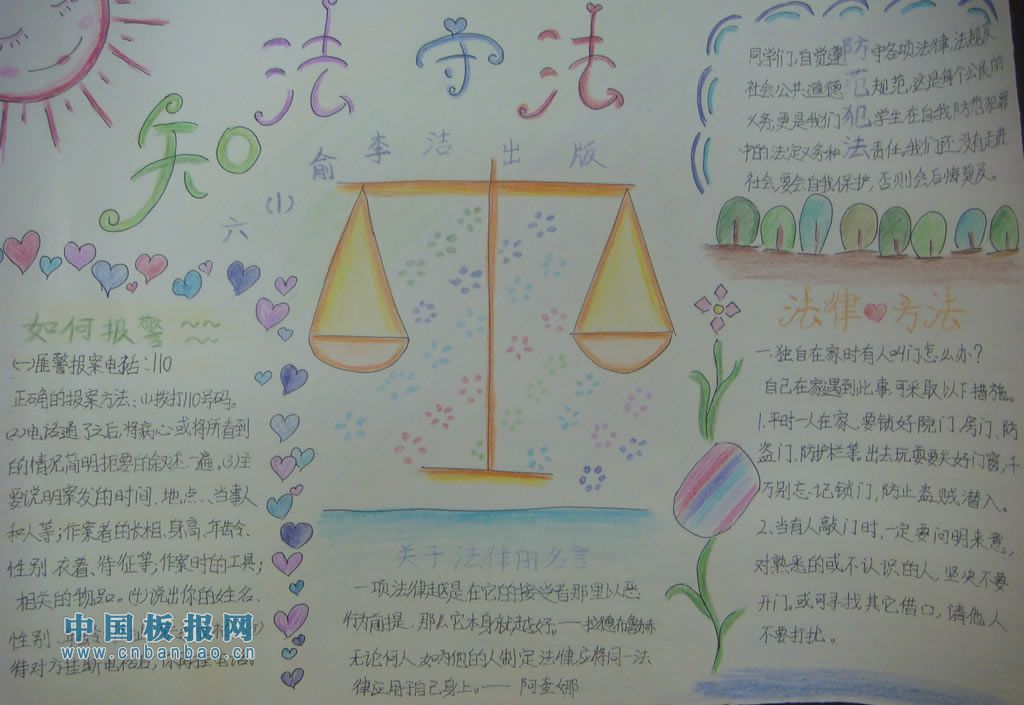 知法守法
俞李洁出版
六(1)
同学们,自觉遵防守各项法律,法规及
社会公共道德范规范,这是每个公民的
义务,更是我们犯学生在自我防范犯罪
中的法定义务和法责任。我们还没有走进
社会,要会自我保护,否则会后悔莫及。
如何报警~~
(一)匪警报案电话:110
正确的报案方法:(1)拨打110号码。
(2)电话通了之后,将
或将所看到
的情况简明扼要的叙述一遍。(3)主
要说明案发的时间、地点、当事人
和人等;作案者的长相、身高、年龄、
性别、衣着、特征等;作案时的工具;
相关的物品。(4)说出你的姓名、
性别
中国板报网
www.cnbanbao.cn
待对方挂断电话后,你再挂电话。
关于法律的名言
一项法律越是在它的接受者那里以恶
行为前提,那么它本身就越好。——
无论何人,如为他的人制定法律,应将同一法
律应用于自己身上。——阿奎娜
法律方法
一.独自在家时有人叫门怎么办?
自己在家遇到此事可采取以下措施。
1.平时一人在家、要锁好院门、房门、防
盗门、防护栏等。出去玩耍要关好门窗,千
万别忘记锁门,防止盗贼潜入。
2.当有人敲门时,一定要问明来意,
对熟悉的或不认识的人,坚决不要
开门。或可寻找其它借口,请他人
不要打扰。